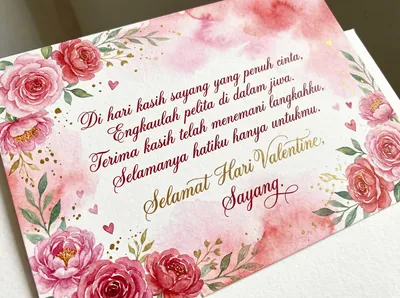 Di hari kasih sayang yang penuh cinta,
Engkaulah pelita di dalam jiwa.
Terima kasih telah menemani langkahku,
Selamanya hatiku hanya untukmu.
Selamat Hari Valentine,
Sayang.